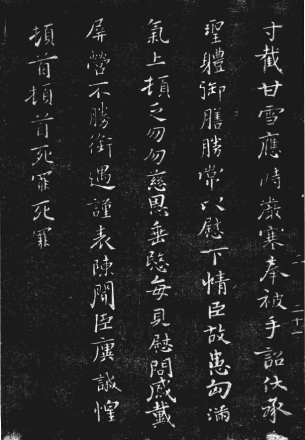 寸截甘雪應時嚴寒奉被手詔伏承
聖體御膳勝常以慰下情臣故患匈滿
氣上頓乏勿勿慈恩垂愍每見慰問感戴
屏營不勝銜遇謹表陳聞臣廙誠惶
頓首頓首死罪死罪